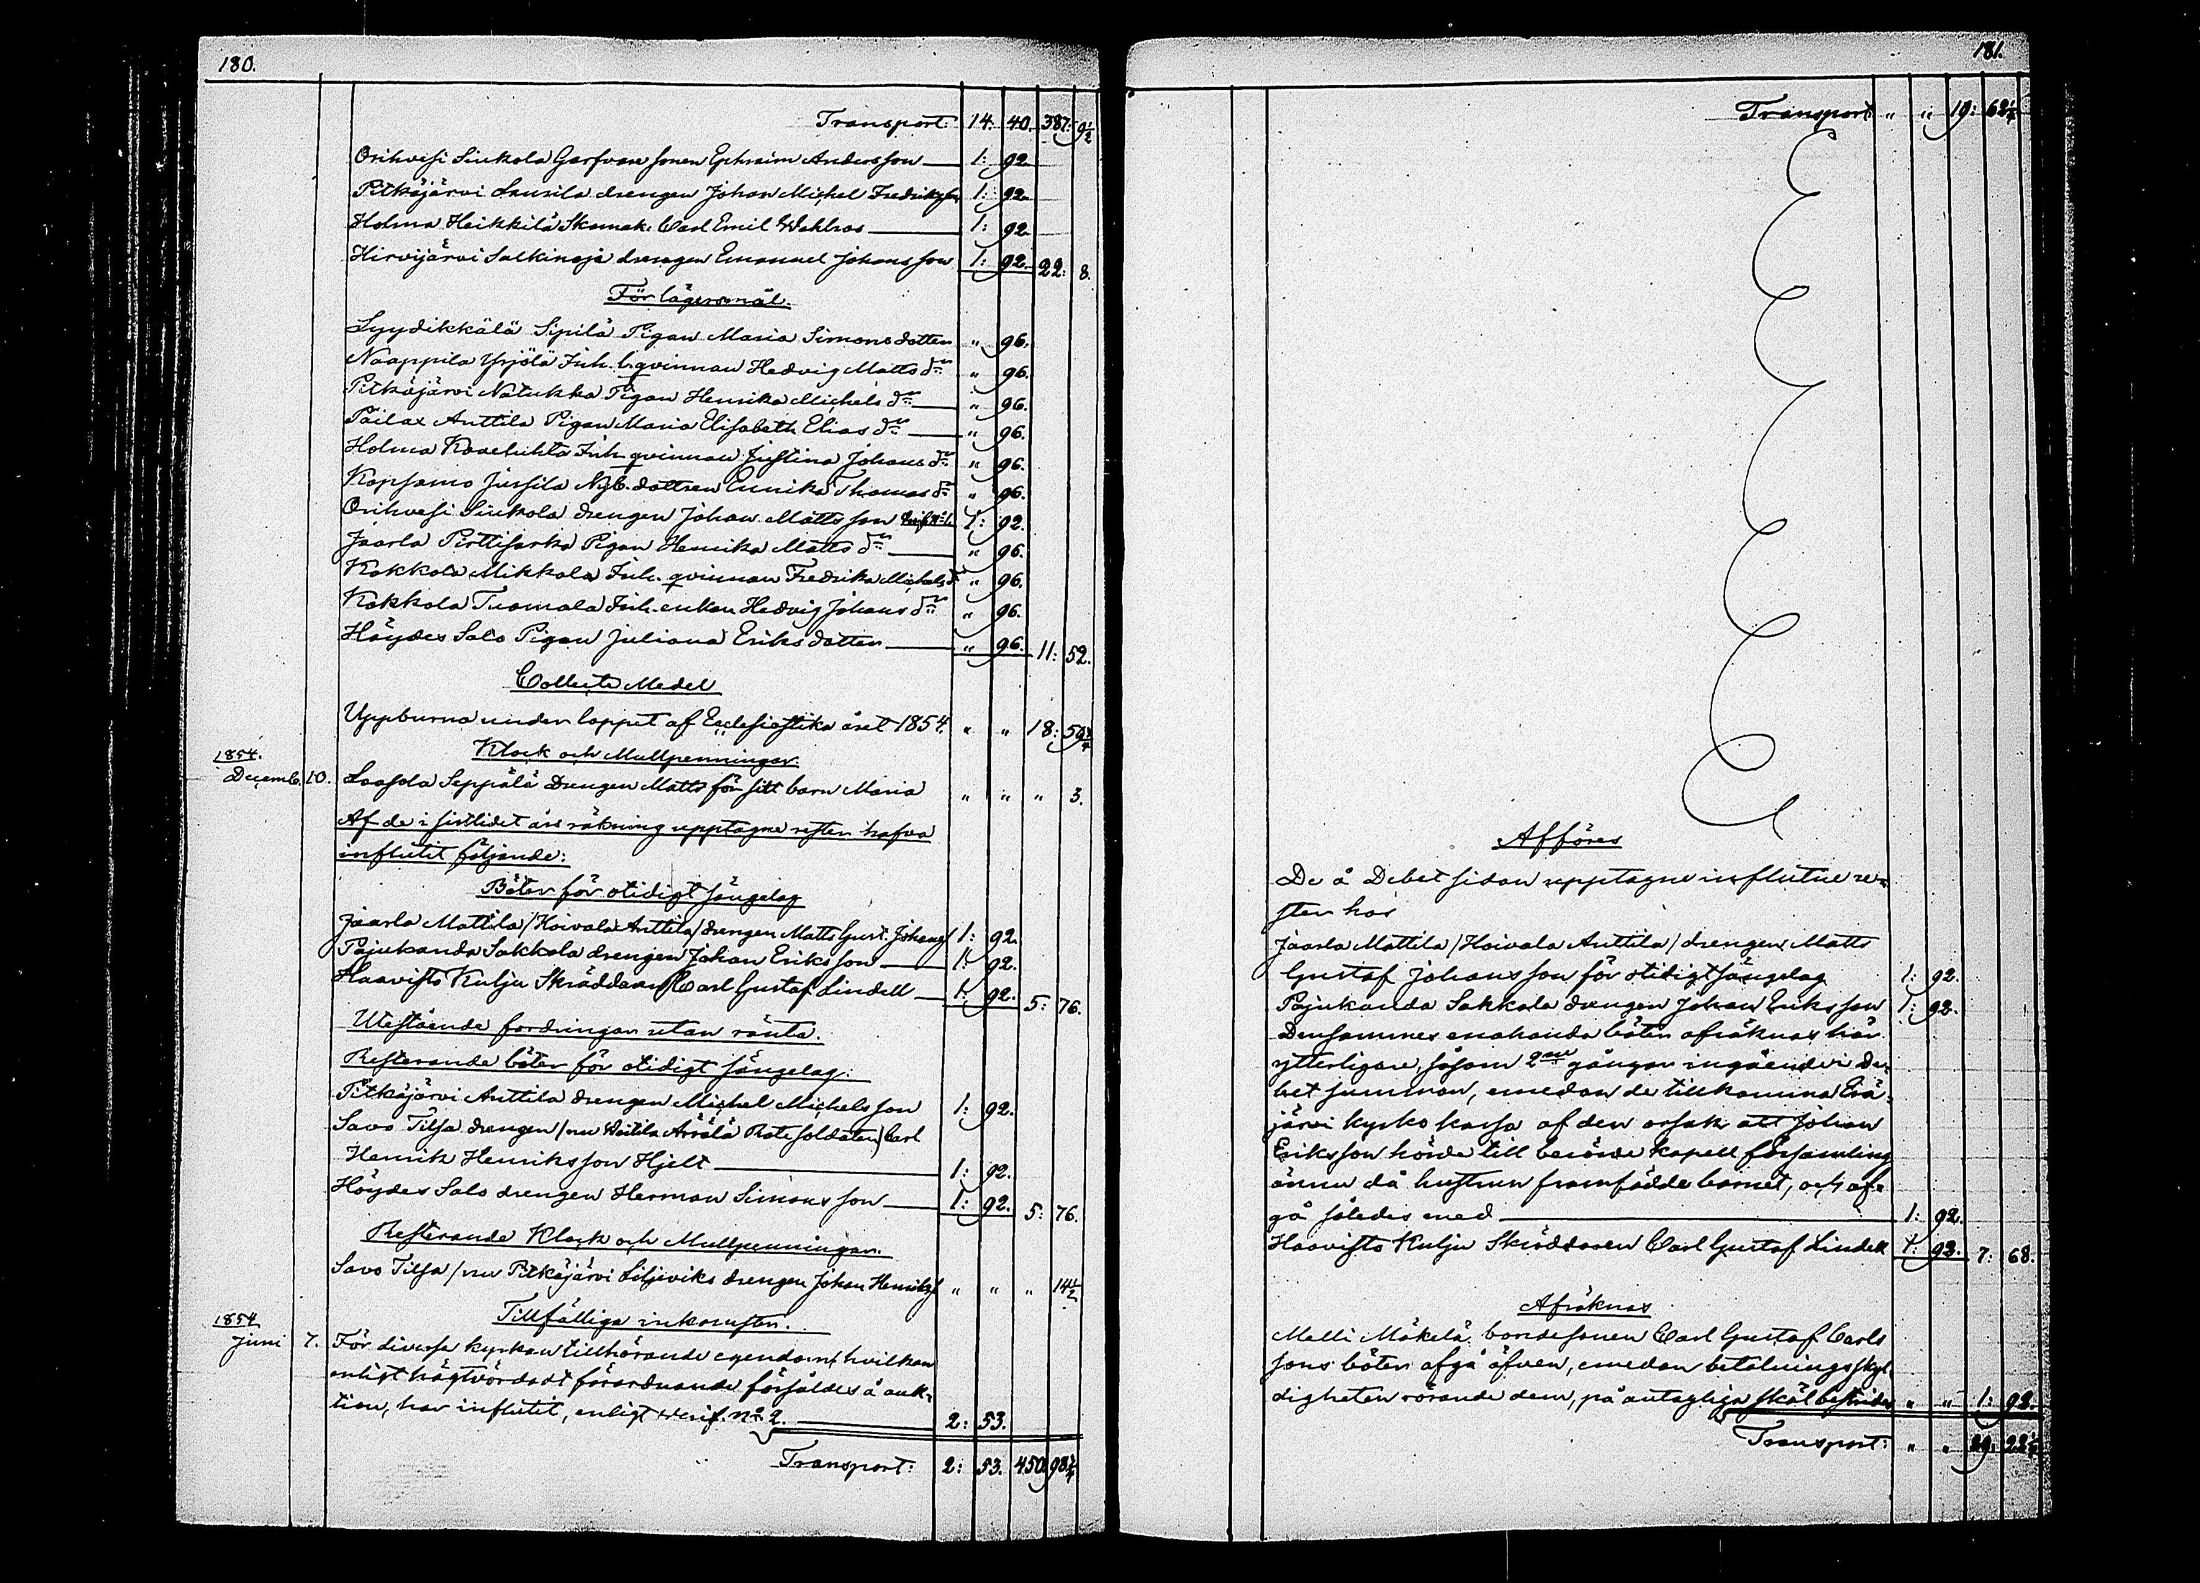 180.
Transport: 14. 40. 387. 9½
Orihvesi Siukola Garfvare sonen Ephraim Andersson 1: 92.
Pitkäjärvi Laurila drengen Johan Michel Fredriksson 1: 92.
Holma Heikkilä Skomak. Carl Emil Wahlroos 1: 92.
Hirvijärvi Salkinoja drengen Emanuel Johansson 1: 92. 22: 8.
För lägersmål.
Lyydikkälä Sipilä Pigan Maria Simonsdotter " 96.
Naappila Yrjölä Inh. qvinnan Hedvig Matts dr " 96.
Pitkäjärvi Natukka Pigan Henrika Michels dr " 96.
Päilax Anttila Pigan Maria Elisabeth Elias dr " 96.
Holma Kovelahta Inh. qvinnan Justina Johans dr " 96.
Kopsamo Jussila Nyb. dottren Ennika Thomas dr " 96.
Orihvesi Siukola drengen Johan Mattsson Verif. No 1. 1: 92.
Jaarla Perttisarka Pigan Henrika Matts dr " 96.
Kokkola Mikkola Inh. qvinnan Fredrika Michels dr " 96.
Kokkola Tuomala Inh. enkan Hedvig Johans dr " 96.
Höydes Salo Pigan Juliana Eriksdotter " 96. 11: 52.
Collecte Medel
Uppburna under loppet af Ecclesiastika året 1854. " " 18: 59¾
Klock och Mullpenningar.
1854.
Decemb. 10. Laasola Seppälä Drengen Matts för sitt barn Maria " " " 3.
Af de i sistlidet års räkning upptagne rester hafva
influtit följande:
Böter för otidigt sängelag
Jaarla Mattila /Koivala Anttila/ drengen Matts Gust. Johanss. 1: 92.
Pajukanda Sakkola drengen Johan Eriksson 1: 92.
Haavisto Kulju Skräddaren Carl Gustaf Lindell 1: 92. 5: 76.
Utestående fordringar utan ränta.
Resterande böter för otidigt sängelag:
Pitkäjärvi Anttila drengen Michel Michelsson 1: 92.
Savo Tilsa drengen /nu Uotila Arrälä Rotesoldaten/ Carl
Henrik Henriksson Hjelt 1: 92.
Höydes Salo drengen Herman Simonsson 1: 92. 5: 76.
Resterande Klock och Mullpenningar.
Savo Tilsa /nu Pitkäjärvi Liljeviks drengen Johan Henrikss. " " " 14½
Tillfälliga inkomster.
1854
Juni 7. För diverse kyrkan tillhörande egendom, hvilken
enligt högtvördadt förordnande försåldes å auk-
tion, har influtit, enligt Verif. No 2. 2: 53.
Transport: 2: 53. 450. 98¼
181.
Transport " " 19: 62¼
Afföres
De å Debet sidan upptagne influtne re-
ster hos
Jaarla Mattila /Hoivala Anttila/ drengen Matts
Gustaf Johansson för otidigt sängelag 1: 92.
Pajukanda Sakkola drengen Johan Eriksson 1: 92.
Densammes enahanda böter afräknas här
ytterligare, såsom 2ne gånger ingående i De-
bet summan, emedan de tillkomma Erä-
järvi kyrko kassa af den orsak att Johan
Eriksson hörde till berörde kapell församling
ännu då hustrun framfödde barnet, och af-
gå således med 1: 92.
Haavisto Kulju Skräddaren Carl Gustaf Lindell 1: 92. 7: 68.
Afräknas
Malli Mäkelä bondesonen Carl Gustaf Carls
sons böter afgå äfven, emedan betalningsskyl-
digheten rörande dem, på antagliga skäl bestrides " " 1: 92.
Transport: " " 29: 22¼